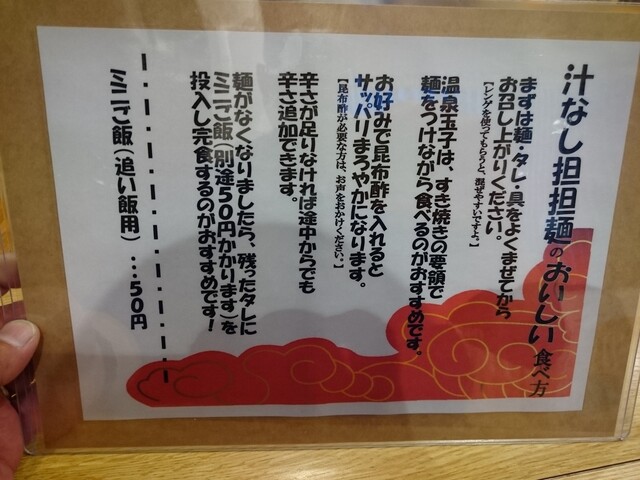 汁なし担担麺のおいしい食べ方
まずは麺・タレ・具をよくまぜてから
お召し上がりください。
【レンゲを使ってもらうと、混ぜやすいですよ。】
温泉玉子は、すき焼きの要領で
麺をつけながら食べるのがおすすめです。
お好みで昆布酢を入れると
サッパリまろやかになります。
【昆布酢が必要な方は、お声をおかけください。】
辛さが足りなければ途中からでも
辛さ追加できます。
麺がなくなりましたら、残ったタレに
ミニご飯(別途50円かかります)を
投入し完食するのがおすすめです!
ミニご飯(追い飯用)‥:50円